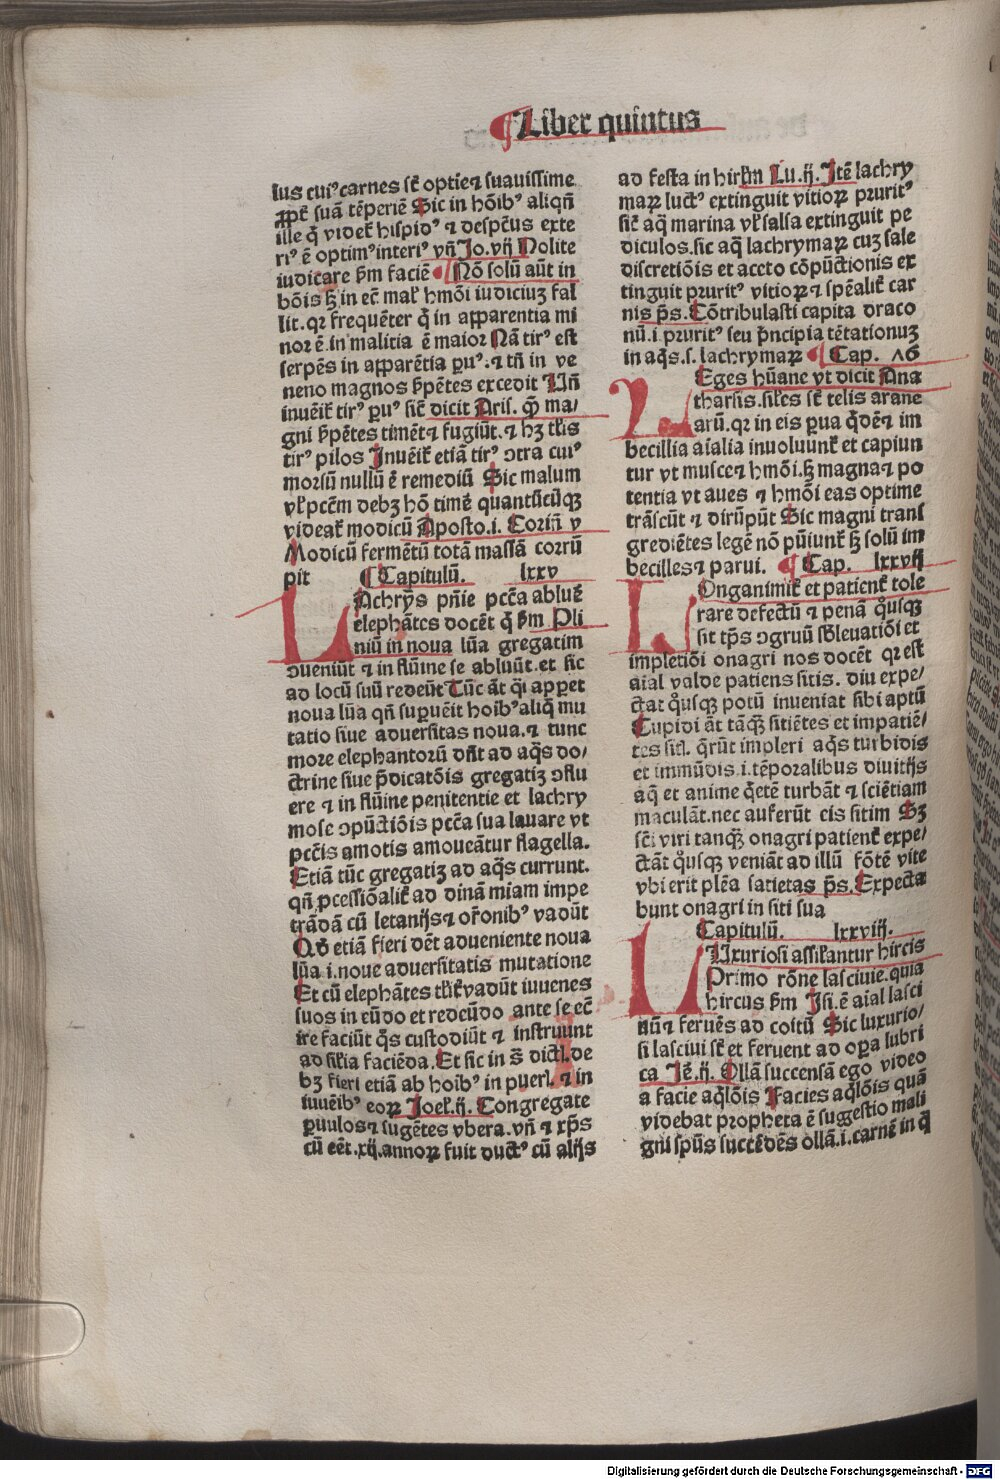 Liber quintus
lus cuiꝰ carnes st̄ optie ⁊ suauissime
ꝓpt̄ suā tēperiē Sic in hōibꝰ aliqñ
ille q̄ videt̄ hispidꝰ ⁊ despēus exte
riꝰ ē optimꝰ interiꝰ vñ Jo. vij Nolite
iudicare ẜm faciē Nō solū aūt in
bōis ẜꝫ in ec̄ mal̄ hmōi iudiciuꝫ fal
lit. qꝛ frequēter q̄ in apparentia mi
nor ē. in malitia ē maior Nā tirꝰ est
serpēs in apparētia ꝑuꝰ. ⁊ tñ in ve
neno magnos ẜpētes excedit Uñ
inuēit̄ tirꝰ ꝑuꝰ sic̄ dicit Aris. qͣꝫ ma/
gni ẜpētes timēt ⁊ fugiūt. ⁊ hꝫ tl̄is
tirꝰ pilos Inuēit̄ etiā tirꝰ ↄtra cuiꝰ
morsū nullū ē remediū Sic malum
vl̄ pctm̄ debꝫ hō timē quantūcūqꝫ
videat̄ modicū Aposto. i. Corin̄ v
Modicū fermētū totā massā corrū
pit Capitulū. lxxv
LAchrȳs pn̄ie pctā abluē
elephātes docēt q̄ ẜm Pli
niū in noua lūa gregatim
ↄueniūt ⁊ in flūine se abluūt. et sic
ad locū suū redeūt Tūc āt qn̄ apparet
noua lūa qñ suꝑuēit hoibꝰ aliq̄ mu
tatio siue aduersitas noua. ⁊ tunc
more elephantorū dn̄t ad aq̄s do/
ctrine siue p̄dicatōis gregatiꝫ ↄflu
ere ⁊ in flūine penitentie et lachry
mose ↄpūctiōis pctā sua lauare vt
pctīs amotis amoueātur flagella.
Etiā tūc gregatiꝫ ad aq̄s currunt.
qñ ꝓcessiōalit̄ ad dinā miam impe
trādā cū letanijs ⁊ or̄onibꝰ vadūt
Qd̄ etiā fieri dēt adueniente noua
lūa i. noue aduersitatis mutatione
Et cū elephātes tl̄it̄ vadūt iuuenes
suos in eūdo et redeūdo ante se ec̄
ire faciūt q̄s custodiūt ⁊ instruunt
ad sil̄ia faciēda. Et sic in s̄ dicti. de
bꝫ fieri etiā ab hoibꝰ in puerl. ⁊ in
iuuēibꝰ eoꝝ Joel. ij. Congregate
ꝑuulos ⁊ sugētes vbera. vñ ⁊ xp̄s
cū eēt. xij. annoꝝ fuit ductꝰ cū alijs
ad festa in hirl̄m Lu. ij. Itē lachry
maꝝ luctꝰ extinguit vitioꝝ pruritꝰ
sic̄ aq̄ marina vl̄ salsa extinguit pe
diculos. sic aq̄ lachrymaꝝ cuꝫ sale
discretiōis et aceto cōpūctionis ex
tinguit pruritꝰ vitioꝝ ⁊ spēalit̄ car
nis p̄s. Cōtribulasti capita draco
nū. i. pruritꝰ seu p̄ncipia tētationuꝫ
in aq̄s. s. lachrymaꝝ Cap. 76
LEges hūane vt dicit Ana
tharsis. sil̄es st̄ telis arane
arū. qꝛ in eis ꝑua q̄dē ⁊ im
becillia aialia inuoluunt̄ et capiun
tur vt musce ⁊ hmōi. ẜꝫ magna ⁊ po
tentia vt aues ⁊ hmōi eas optime
trāscūt ⁊ dirūpūt Sic magni trans
grediētes legē nō pūiunt̄ ẜꝫ solū im
becilles ⁊ parui. Cap. lxxvij
LOnganimit̄ et patient̄ tole
rare defectū ⁊ penā qͦusqꝫ
sit tp̄s ↄgruū sb̄leuatiōi et
impletiōi onagri nos docēt qꝛ est
aial valde patiens sitis. diu expe/
ctat qͦusqꝫ potū inueniat sibi aptū
Cupidi āt tāqꝫ sitiētes et impatiē/
tes sil. q̄rūt impleri aq̄s turbidis
et immūdis. i. tēporalibus diuitijs
aq̄ et anime q̄etē turbāt ⁊ sciētiam
maculāt. nec auferūt eis sitim Sꝫ
sct̄i viri tanqꝫ onagri patient̄ expe/
ctāt qͦusqꝫ veniāt ad illū fōtē vite
vbi erit plēa satietas p̄s. Expecta
bunt onagri in siti sua
Capitulū. lxxviij.
LUxuriosi assil̄antur hircis
Primo rōne lasciuie. quia
hircus ẜm Isi. ē aial lasci
uū ⁊ feruēs ad coitū Sic luxurio/
si lasciui st̄ et feruent ad oꝑa lubri
ca Jē. ij. Ollā succensā ego video
a facie aq̄lōis Facies aq̄lōis quā
videbat propheta ē sugestio mali
gni spūs succēdēs ollā. i. carnē in q̄
Digitalisierung gefördert durch die Deutsche Forschungsgemeinschaft - DFG